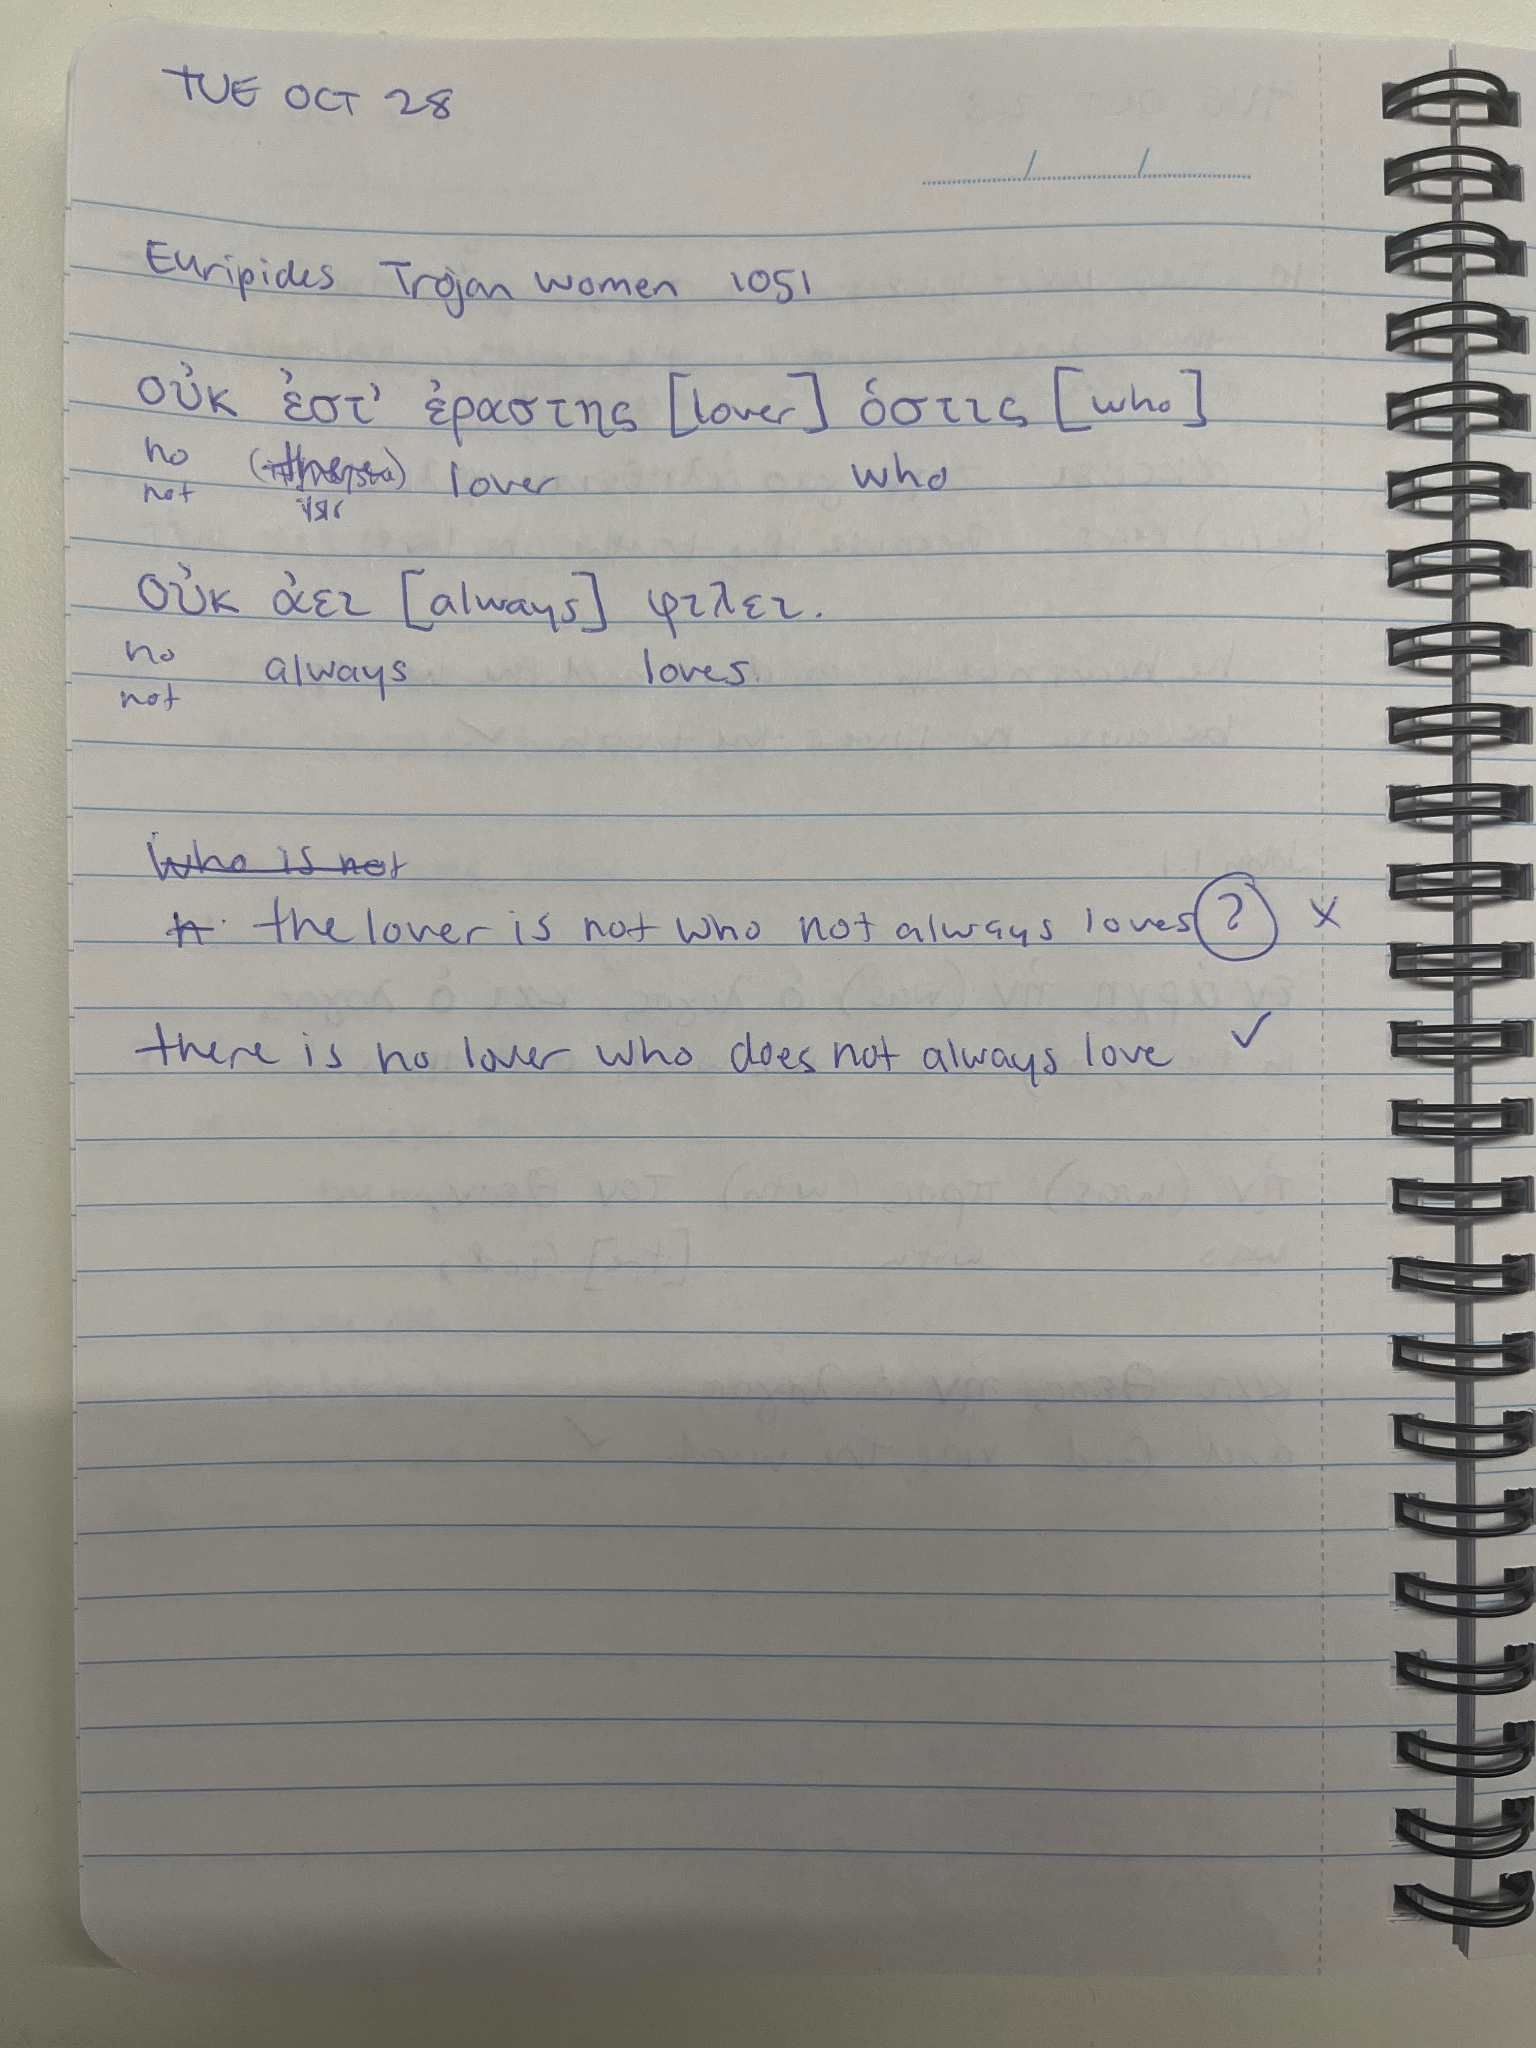 TUE OCT 28
Euripides Trojan Women 1051
οὐκ ἐστ' ἐραστης [lover] ὁστις [who]
no lover who
not is
οὐκ ἀει [always] φιλει.
no always loves.
not
Who is not
the lover is not who not always loves ? x
there is no lover who does not always love ✓